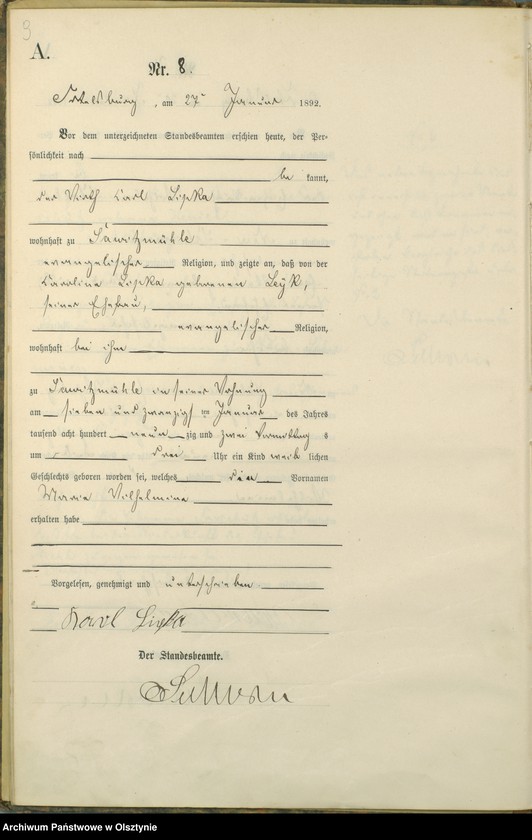 9
A.
Nr. 8.
Ortelsburg, am 27ten Januar 1892.
Vor dem unterzeichneten Standesbeamten erschien heute, der Per-
sönlichkeit nach
be kannt,
der Wirth Carl Lipka
wohnhaft zu Sawitzmühle
evangelischer Religion, und zeigte an, daß von der
Caroline Lipka geborenen Leyk,
seiner Ehefrau,
evangelischer Religion,
wohnhaft bei ihm
zu Sawitzmühle in seiner Wohnung
am sieben und zwanzigsten Januar des Jahres
tausend acht hundert neun zig und zwei Vormittag s
um drei Uhr ein Kind weib lichen
Geschlechts geboren worden sei, welches die Vornamen
Marie Wilhelmine
erhalten habe
Vorgelesen, genehmigt und unterschrieben
Karl Lipka
Der Standesbeamte.
Archiwum Państwowe w Olsztynie